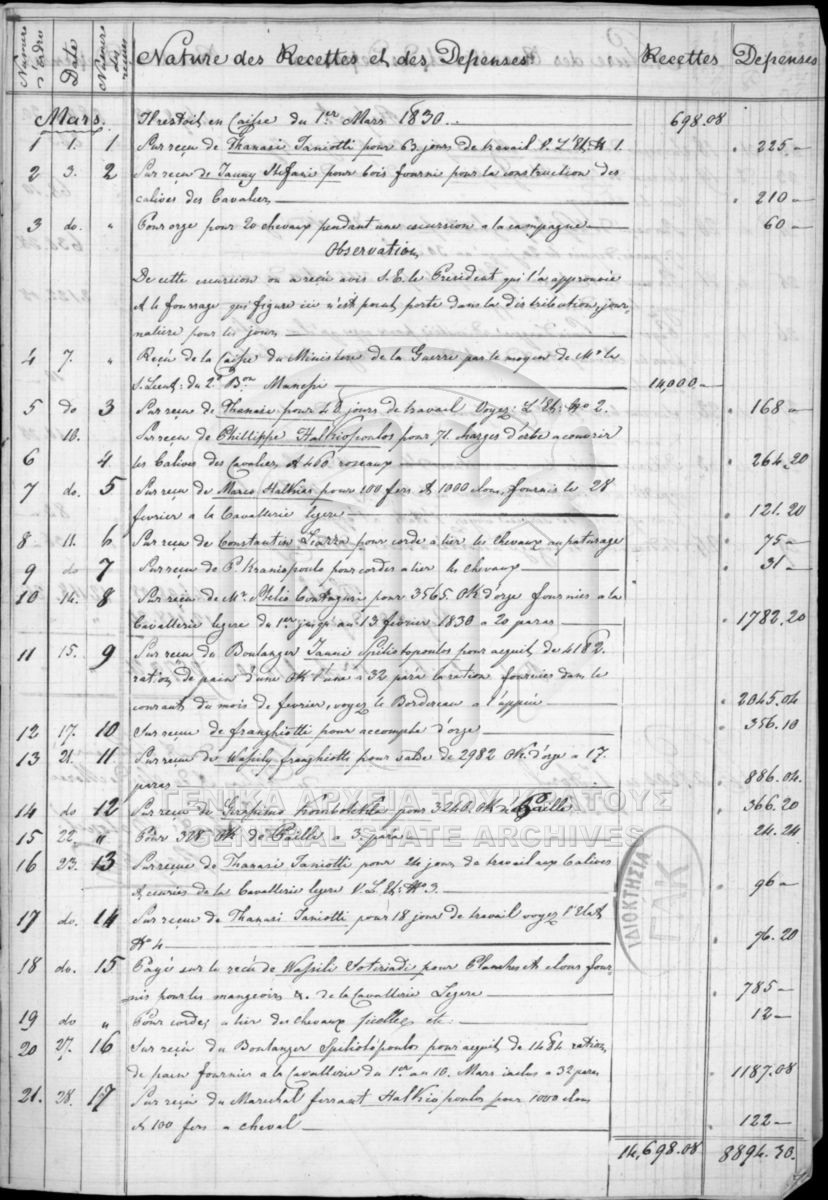 Numéro d'ordre Date Numéro du recu Nature des Recettes et des Depenses Recettes Depenses
Mars. Il restoit en Caisse du 1er Mars 1830. 698.08
1 1. 1 Sur reçu de Thanasi Taniotti pour 63 jours de travail V. L'Et. N 1. 225.—
2 3. 2 Sur reçu de Janny Stefani pour bois fourni pour la construction des
calives des Cavaliers 210—
3 do. " Pour orge pour 20 chevaux pendant une escursion a la campagne 60—
Observation
De cette escursion on a reçu avis S. E. le President qui l'a approuvée
& le fourrage qui figure ici n'est point porté dans la distribution jour-
naliere pour les jours
4 7. " Reçu de la Caisse du Ministère de la Guerre par le moyen de Mr le
S. Lieut: du 2e Bon 14,000.—
5 do 3 Sur recu de Thanasi pour 48 jours de travail Voyez: L'Et: No 2. 168—
10. Sur recu de Phillippe Halkiopoulos pour 71 charges d'erbe a couvrir
6 4. les Calives des Cavaliers, & 460 roseaux 264.20
7 do. 5 Sur recu de Marco Halkias pour 100 fers & 1000 clous, fournis le 28
fevrier a la Cavallerie legere 121.20
8 11. 6 Sur reçu de Constantin pour corde a lier les Chevaux au paturage 75—
9 do 7 Sur recu de P. Kraniopoulo pour cordes a lier les chevaux 31—
10 14. 8 Sur recu de Mr. Stelio pour 3565. OK d'orge fournies a la
Cavallerie legere du 1er jusqu'au 13 fevrier 1830 a 20 paras 1782.20
11 15. 9 Sur recu du Boulanger Janni Spiliotopoulos pour acquit de 4182.
rations de pain d'une OK l'une a 32 para la ration fournies dans le
courants du mois de fevrier, voyez le Bordereau a l'appui 2045.04
12 17. 10 Sur recu de franghiotti pour accompte d'orge 356.10
13 21. 11 Sur recu de Wassily franghiotti pour solde de 2982 OK. d'orge a 17.
paras 886.04.
14 do 12 Sur recu de Gerasimo pour 3240. OK de Paille 366.20
15 22 " Pour 328 OK de Paille a 3 para 24.24
16 23. 13 Sur recue de Thanasi Taniotti pour 24 jours de travail aux Calives
& ecuries de la Cavallerie legere V. L. Et: No 3. 96—
17 do. 14 Sur recu de Thanasi Taniotti pour 18 jour de travail voyez l'Etat
No 4 76.20
18 do. 15 Payé sur le recu de Wassili Sotiriadi pour Planches & clous four-
nis pour les mangeoirs &. de la Cavallerie Legere 785—
19 do " Pour cordes a lier des chevaux etc: 12—
20 27. 16 Sur reçu du Boulanger Spiliotopoulos pour acquit de 1484 rations
de pain fournies a la Cavallerie du 1er au 10. Mars inclus a 32 paras 1187.08
21. 28. 17 Sur reçu du Marechal ferrant Halkiopoulos pour 1000 clous
& 100 fers a cheval 122—
14,698.08 8894.30.
ΓΕΝΙΚΑ ΑΡΧΕΙΑ ΤΟΥ ΚΡΑΤΟΥΣ
GENERAL STATE ARCHIVES
ΙΔΙΟΚΤΗΣΙΑ
ΓΑΚ